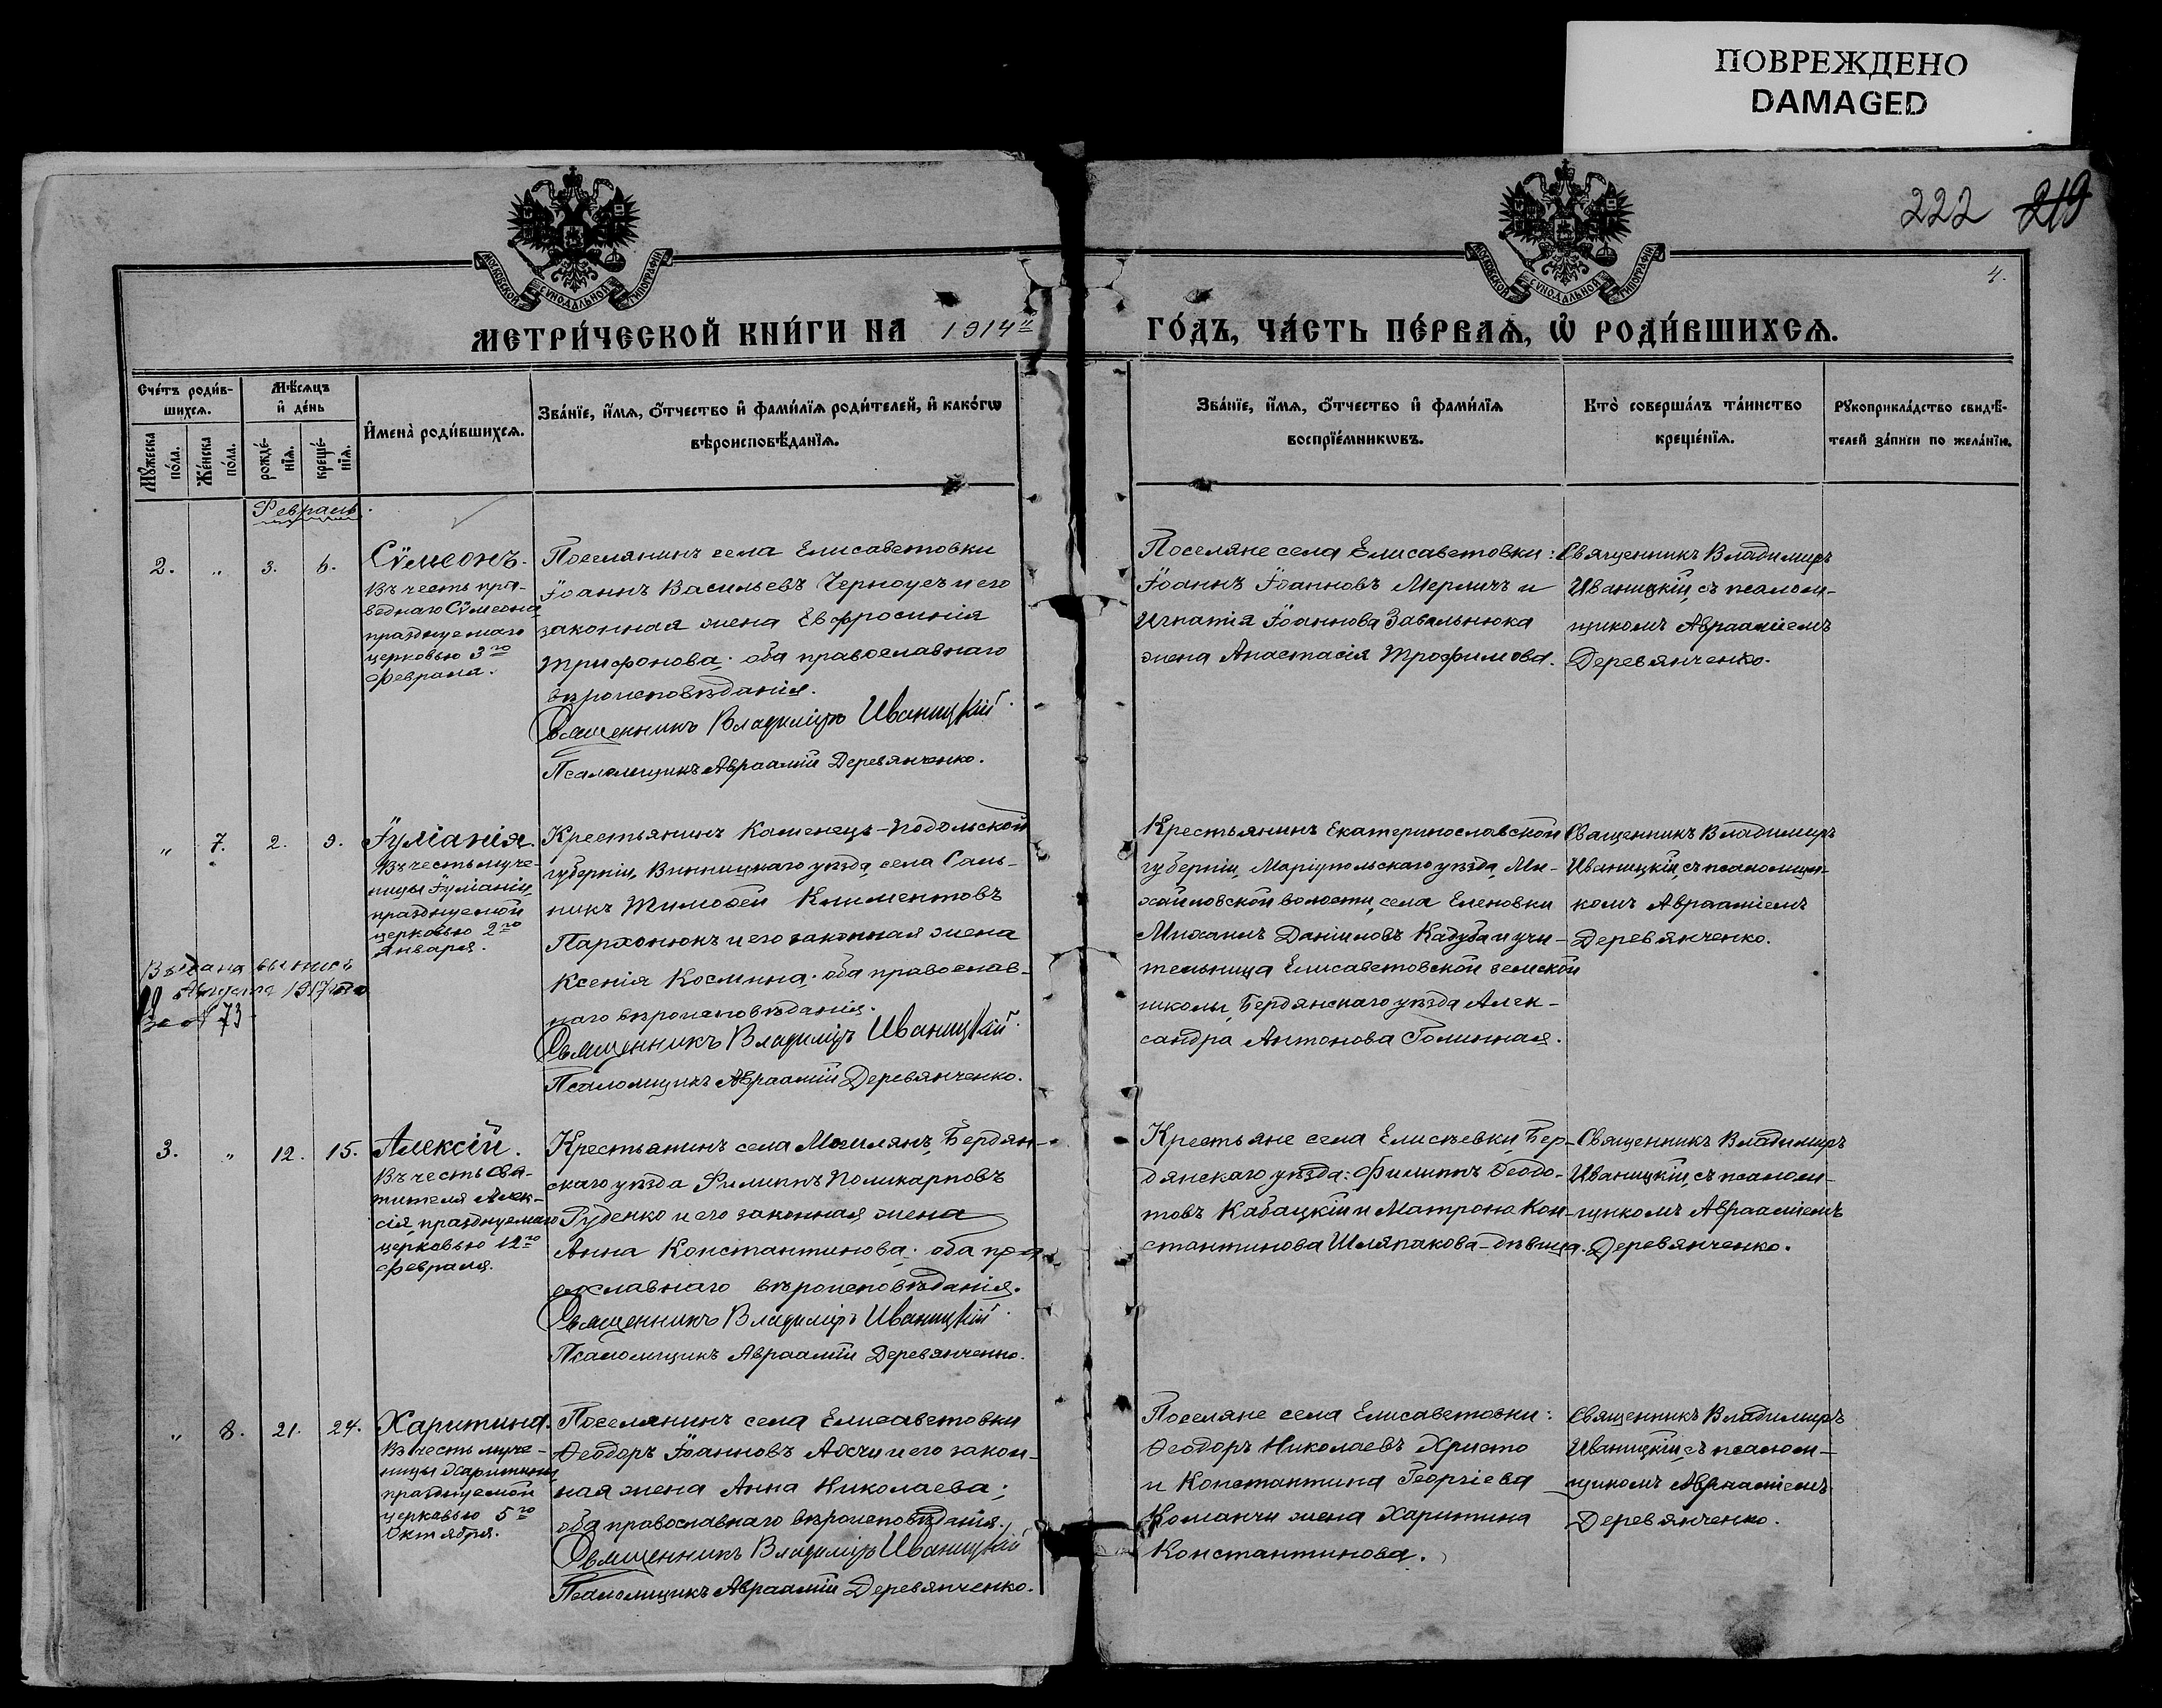 ПОВРЕЖДЕНО
DAMAGED
222 219
4.
МОСКОВСКОЙ СѴНОДАЛЬНОЙ ТИПОГРАФІИ
МОСКОВСКОЙ СѴНОДАЛЬНОЙ ТИПОГРАФІИ
МЕТРИ́ЧЕСКОЙ КНИ́ГИ НА 1914й ГО́ДЪ, ЧА́СТЬ ПЕ́РВАѦ, Ѡ҆ РОДИ́ВШИХСѦ.
Сче́тъ роди́в-
шихсѧ.
Мꙋ́жеска по́ла.
Же́нска по́ла.
Мѣ́сѧцъ
и҆ де́нь
рожде́-
нїѧ.
креще́-
нїѧ.
И҆мена̀ роди́вшихсѧ.
Зва́нїе, и҆́мѧ, ѻ҆́тчество и҆ фами́лїѧ роди́телей, и҆ како́гѡ
вѣроисповѣ́данїѧ.
Зва́нїе, и҆́мѧ, ѻ҆́тчество и҆ фами́лїѧ
воспрїе́мникѡвъ.
Кто̀ соверша́лъ та́инство
креще́нїѧ.
Рꙋкоприкла́дство свидѣ́-
телей за́писи по жела́нїю.
Февраль.
2. „ 3. 6.
Сѵмеонъ.
Въ честь пра-
веднаго Сѵмеона
празднуемаго
церковью 3го
Февраля.
Поселянинъ села Елисаветовки
Іоаннъ Васильевъ Черноусъ и его
законная жена Евфросинія
Трифонова; оба православнаго
вѣроисповѣданія.
Священникъ Владиміръ Иваницкій.
Псаломщикъ Авраамій Деревянченко.
Поселяне села Елисаветовки:
Іоаннъ Іоанновъ Мерличъ и
Игнатія Іоаннова Завальнюка
жена Анастасія Трофимова.
Священникъ Владимиръ
Иваницкій, съ псалом-
щикомъ Авраамiемъ
Деревянченко.
„ 7. 2. 9.
Іуліанія.
Въ честь муче-
ницы Іуліаніи,
празднуемой
церковью 2го
Января.
Выдана выпись
Августа 1917 го
за № 73
Крестьянинъ Каменецъ-Подольской
губерніи, Винницкаго уѣзда, села Саль-
никъ Тимоѳей Климентовъ
Пархонюкъ и его законная жена
Ксенія Космина; оба православ-
наго вѣроисповѣданія.
Священникъ Владиміръ Иваницкій.
Псаломщикъ Авраамій Деревянченко.
Крестьянинъ Екатеринославской
губерніи, Маріупольскаго уѣзда, Ми-
хайловской волости, села Еленовки
Михаилъ Даніиловъ Кадуба и учи-
тельница Елисаветовской земской
школы, Бердянскаго уѣзда Алек-
сандра Антонова Голинная.
Священникъ Владимиръ
Иваницкій, съ псаломщи-
комъ Аврааміемъ
Деревянченко.
3. „ 12. 15.
Алексій.
Въ честь Свя-
тителя Алек-
сія, празднуемаго
церковью 12го
Февраля.
Крестьянинъ села Могилянъ, Бердян-
скаго уѣзда Филиппъ Поликарповъ
Руденко и его законная жена
Анна Константинова; оба пра-
вославнаго вѣроисповѣданія.
Священникъ Владиміръ Иваницкій.
Псаломщикъ Авраамій Деревянченко.
Крестьяне села Елисѣевки, Бер-
дянскаго уѣзда: Филиппъ Ѳеодо-
товъ Кабацкій и Матрона Кон-
стантинова Шляпакова-дѣвица.
Священникъ Владимиръ
Иваницкій, съ псалом-
щикомъ Аврааміемъ
Деревянченко.
„ 8. 21. 24.
Харитина.
Въ честь муче-
ницы Харитины,
празднуемой
церковью 5го
Октября.
Поселянинъ села Елисаветовки
Ѳеодоръ Іоанновъ Ахчи и его закон-
ная жена Анна Николаева;
оба православнаго вѣроисповѣданія.
Священникъ Владиміръ Иваницкій
Псаломщикъ Авраамій Деревянченко.
Поселяне села Елисаветовки:
Ѳеодоръ Николаевъ Христо
и Константина Георгіева
Команчи жена Харитина
Константинова.
Священникъ Владимиръ
Иваницкій, съ псалом-
щикомъ Аврааміемъ
Деревянченко.